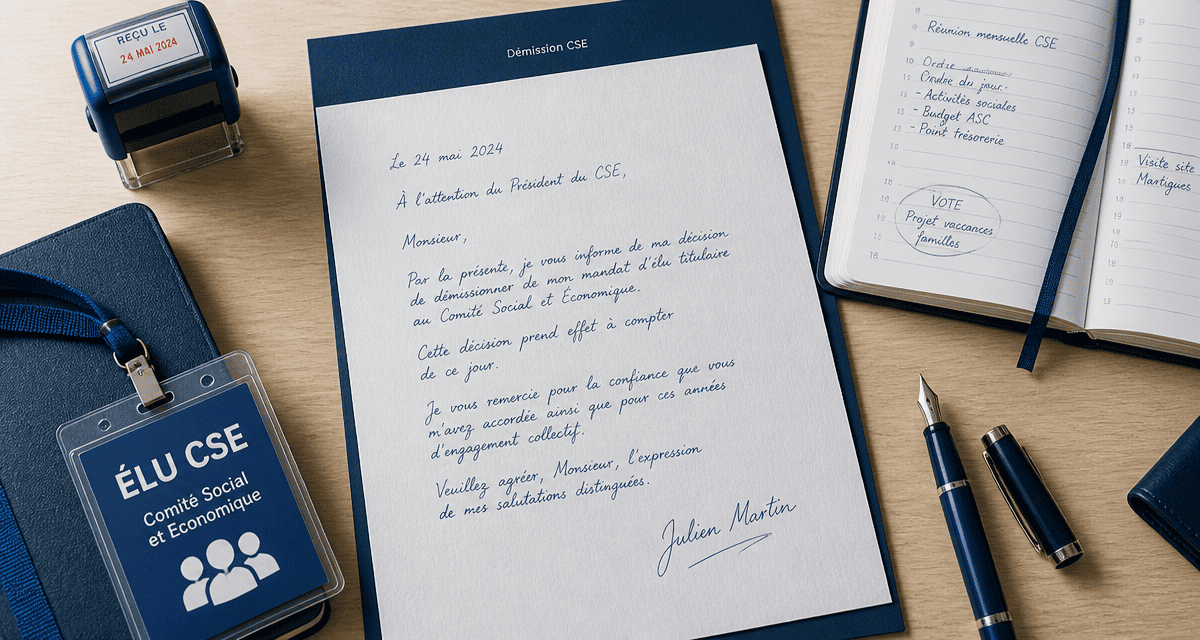 REÇU LE
24 MAI 2024
Démission CSE
Le 24 mai 2024
À l'attention du Président du CSE,
Monsieur,
Par la présente, je vous informe de ma décision
de démissionner de mon mandat d'élu titulaire
au Comité Social et Économique.
Cette décision prend effet à compter
de ce jour.
Je vous remercie pour la confiance que vous
m'avez accordée ainsi que pour ces années
d'engagement collectif.
Veuillez agréer, Monsieur, l'expression
de mes salutations distinguées.
Julien Martin
ÉLU CSE
Comité Social
et Economique
Réunion mensuelle CSE
Ordre
Ordre du jour.
- Activités sociales
- Budget ASC
- Point trésorerie
VOTE
Projet vaccances
familles
Visite site
Martigues